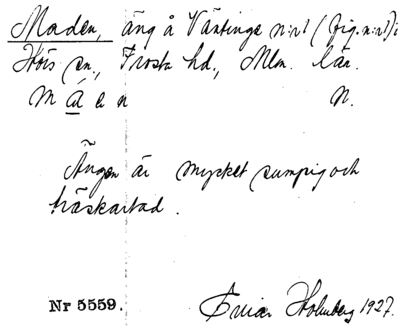 Maden, äng å Växtinge n:r 1 (fig. n:r 1) i
Hörs sn., Frosta hd., Mlm. län.
m a e n N.
Ängen är mycket sumpig och
träskartad.
Nr 5559. Einar Holmberg 1927.